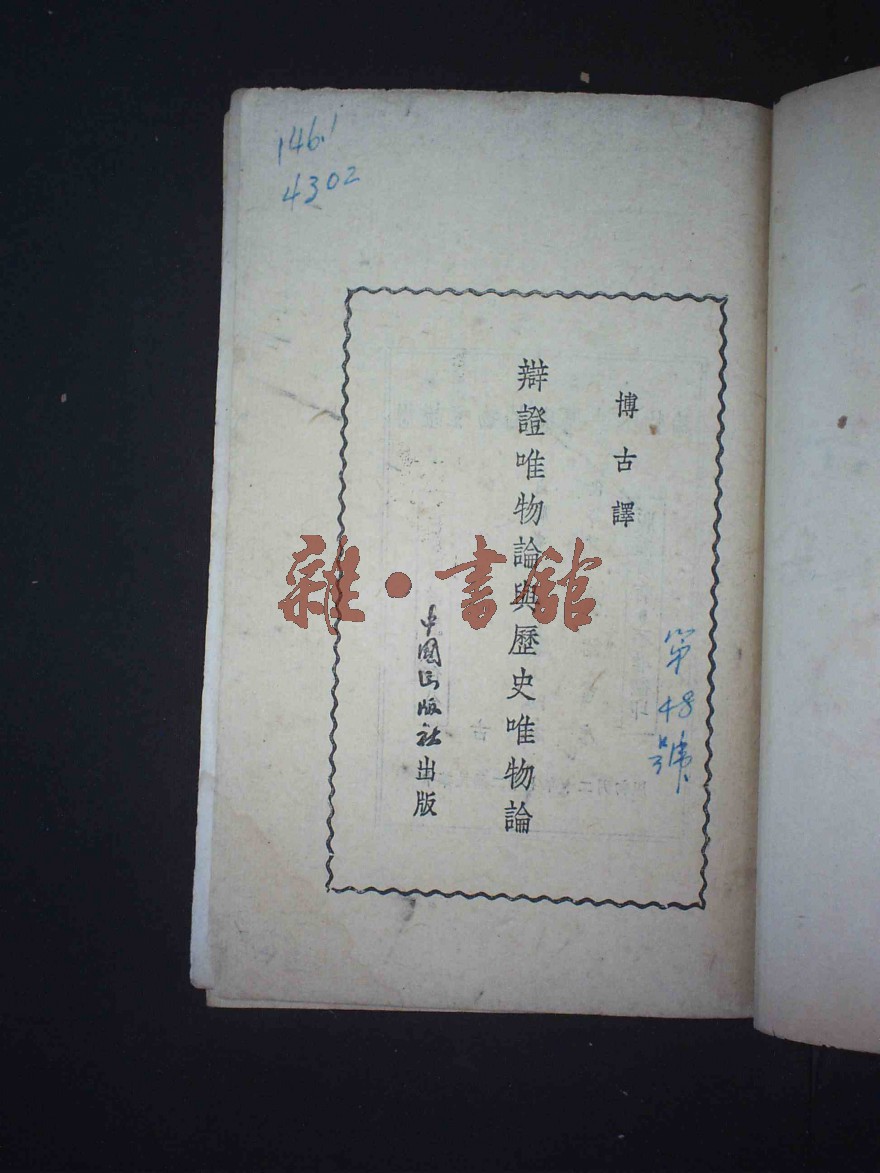 146.1
4302
博古譯
辯證唯物論與歷史唯物論
中國出版社出版
第48號
雜·書館